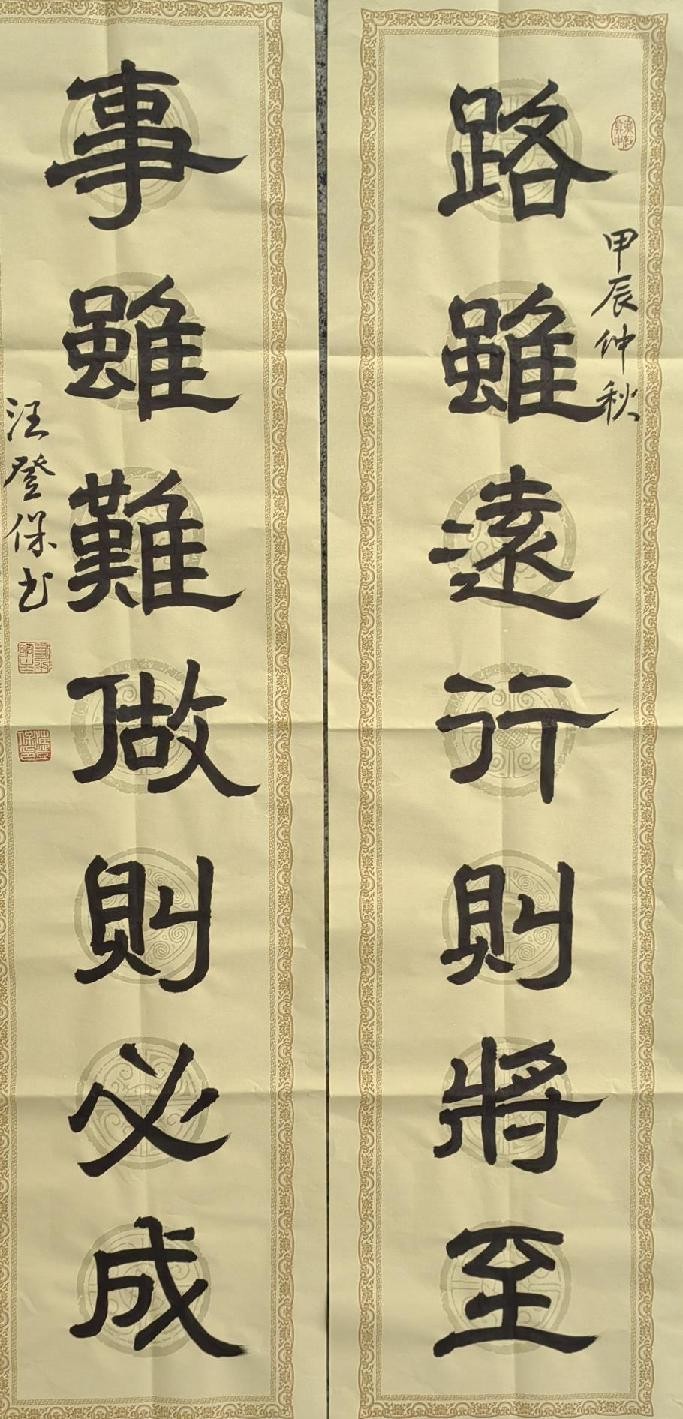 甲辰仲秋
路雖遠行則將至
事雖難做則必成
汪登保书